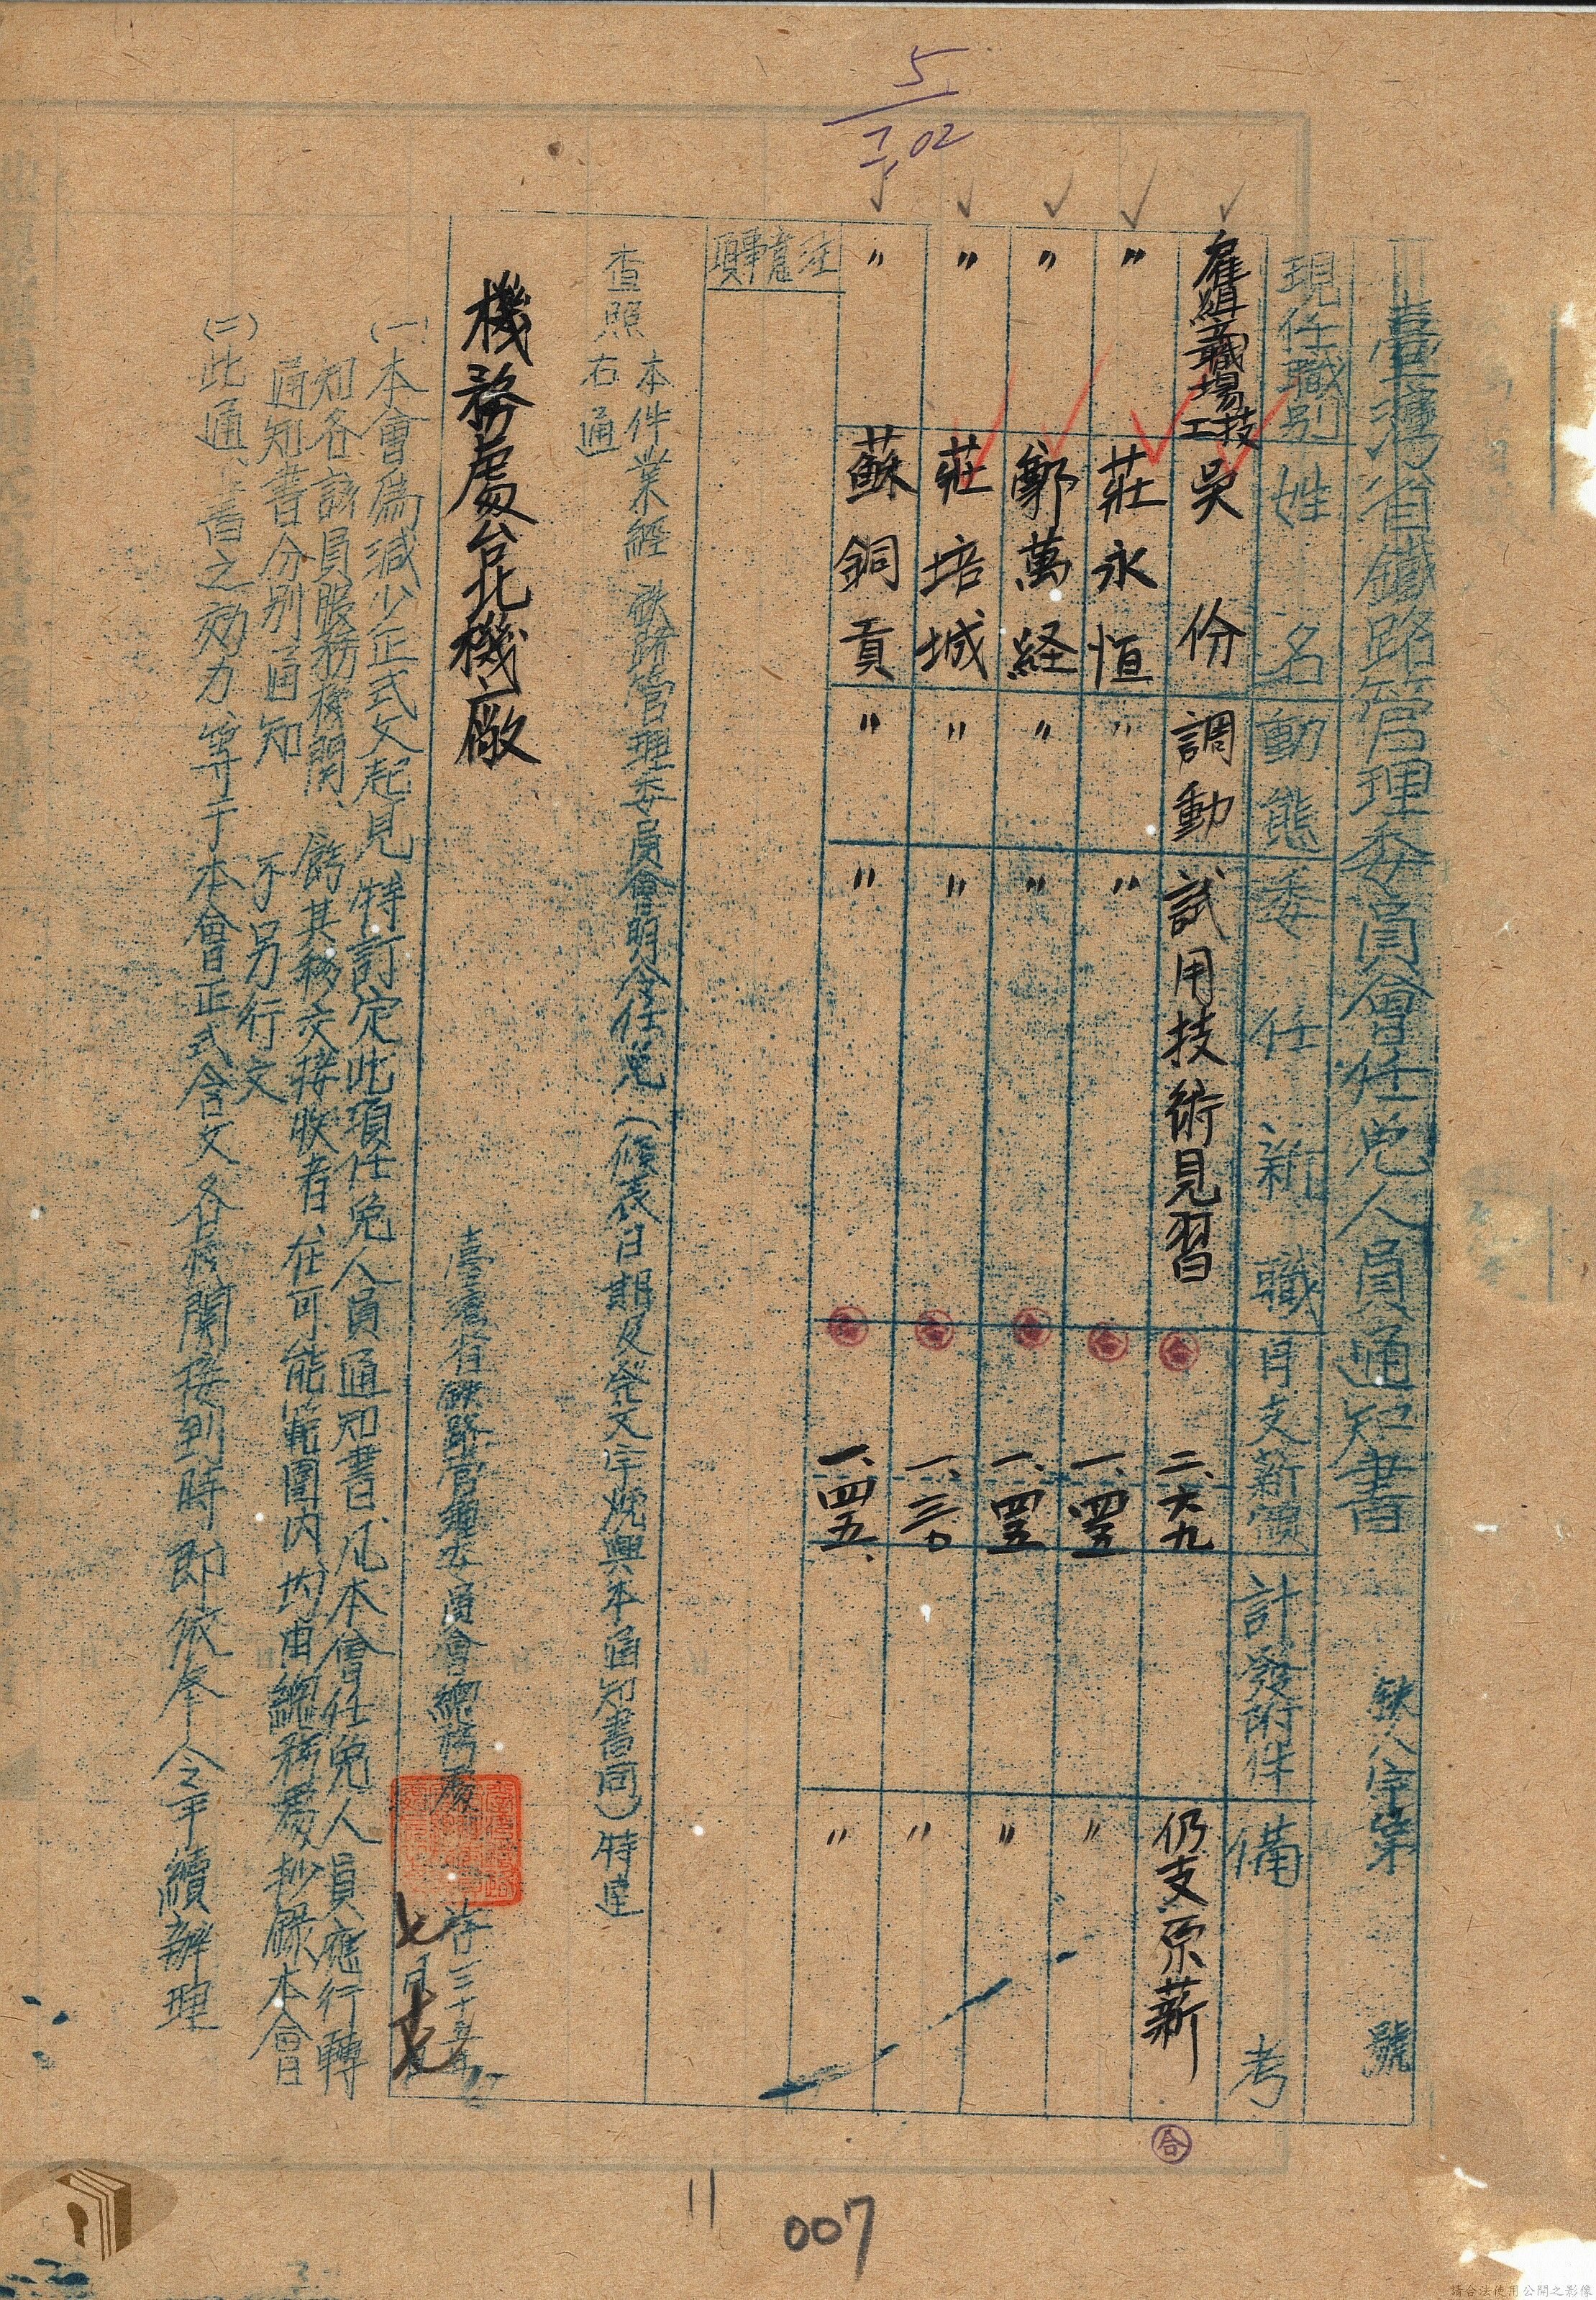 5
7.02
臺灣省鐵路管理委員會任免人員通知書 鉄人字第 號
現任職別 姓名 動態 委任新職 月支薪額 計發附件 備考
吳份 調動 試用技術見習 二、六九 仍支原薪
〃 莊永恒 〃 〃 一、四五 〃
〃 鄭萬経 〃 〃 一、四五 〃
〃 莊培城 〃 〃 一、三〇 〃
〃 蘇銅貢 〃 〃 一、四五、 〃
注意事項
本件業經 鉄路管理委員會明令任免(候表日期及發文字號與本通知書同)特達
查照
右通
機務處台北機廠
臺灣省鉄路管理委員會總務處
七月十七
(一)本會爲減少正式文起見特訂定此項任免人員通知書凡本會任免人員應行轉
知各該員服務機關、飭其移交接收者、在可能範圍内均由總務處抄錄本會
通知書分別通知 不另行文
(二)此通、書之効力等于本會正式令文各機關接到時即依奉令手續辦理
合
11
007
請合法使用公開之影像